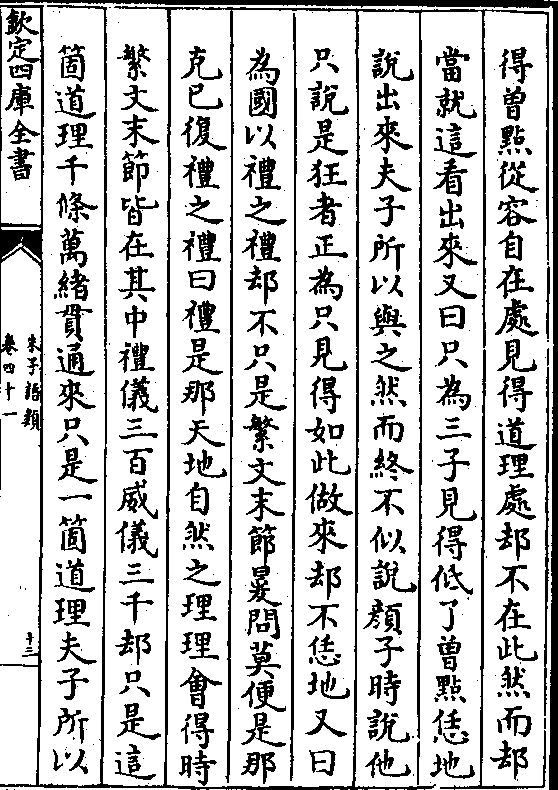 得曾點從容自在處見得道理處却不在此然而却
當就這看出來又曰只為三子見得低了曾點恁地
說出來夫子所以與之然而終不似說顏子時說他
只說是狂者正為只見得如此做來却不恁地又曰
為國以禮之禮却不只是繁文末節㬊問莫便是那
克己復禮之禮曰禮是那天地自然之理理會得時
繁文末節皆在其中禮儀三百威儀三千却只是這
箇道理千條萬緒貫通來只是一箇道理夫子所以
欽定四庫全書
朱子語類
卷四十一
十三